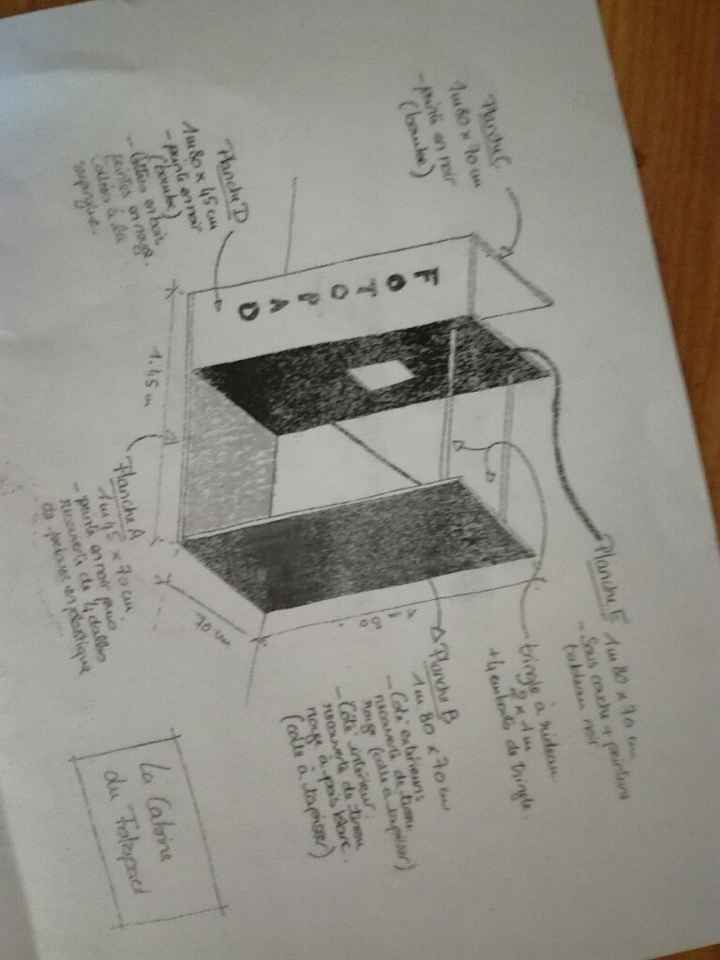 Planche C
1m80 x 70 cm
- peinte en noir
(bombe)
Planche D
1m80 x 45 cm
- peinte en noir
(bombe)
- lettres en bois
peintes en rouge.
collées à la
FOTOPAD
1.45 m
Planche A
1m45 x 70 cm
- peinte en noir puis
recouverte de 4 dalles
en plastique
70 cm
Planche E 1m80 x 70 cm
- Sous couche + peinture
tableau noir
tringle à rideau
2 x 1m
+ 4 embouts de tringle.
Planche B
1m80 x 70 cm
- Côté extérieurs
recouverte de tissu
rouge (colle à tapisser)
- Côté intérieur
recouverte de tissu
rouge à pois blanc.
(colle à tapisser)
La Cabine
du